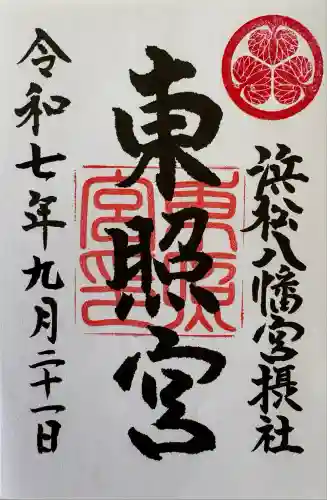 浜松八幡宮摂社
東照宮
令和七年九月二十一日
東照宮印